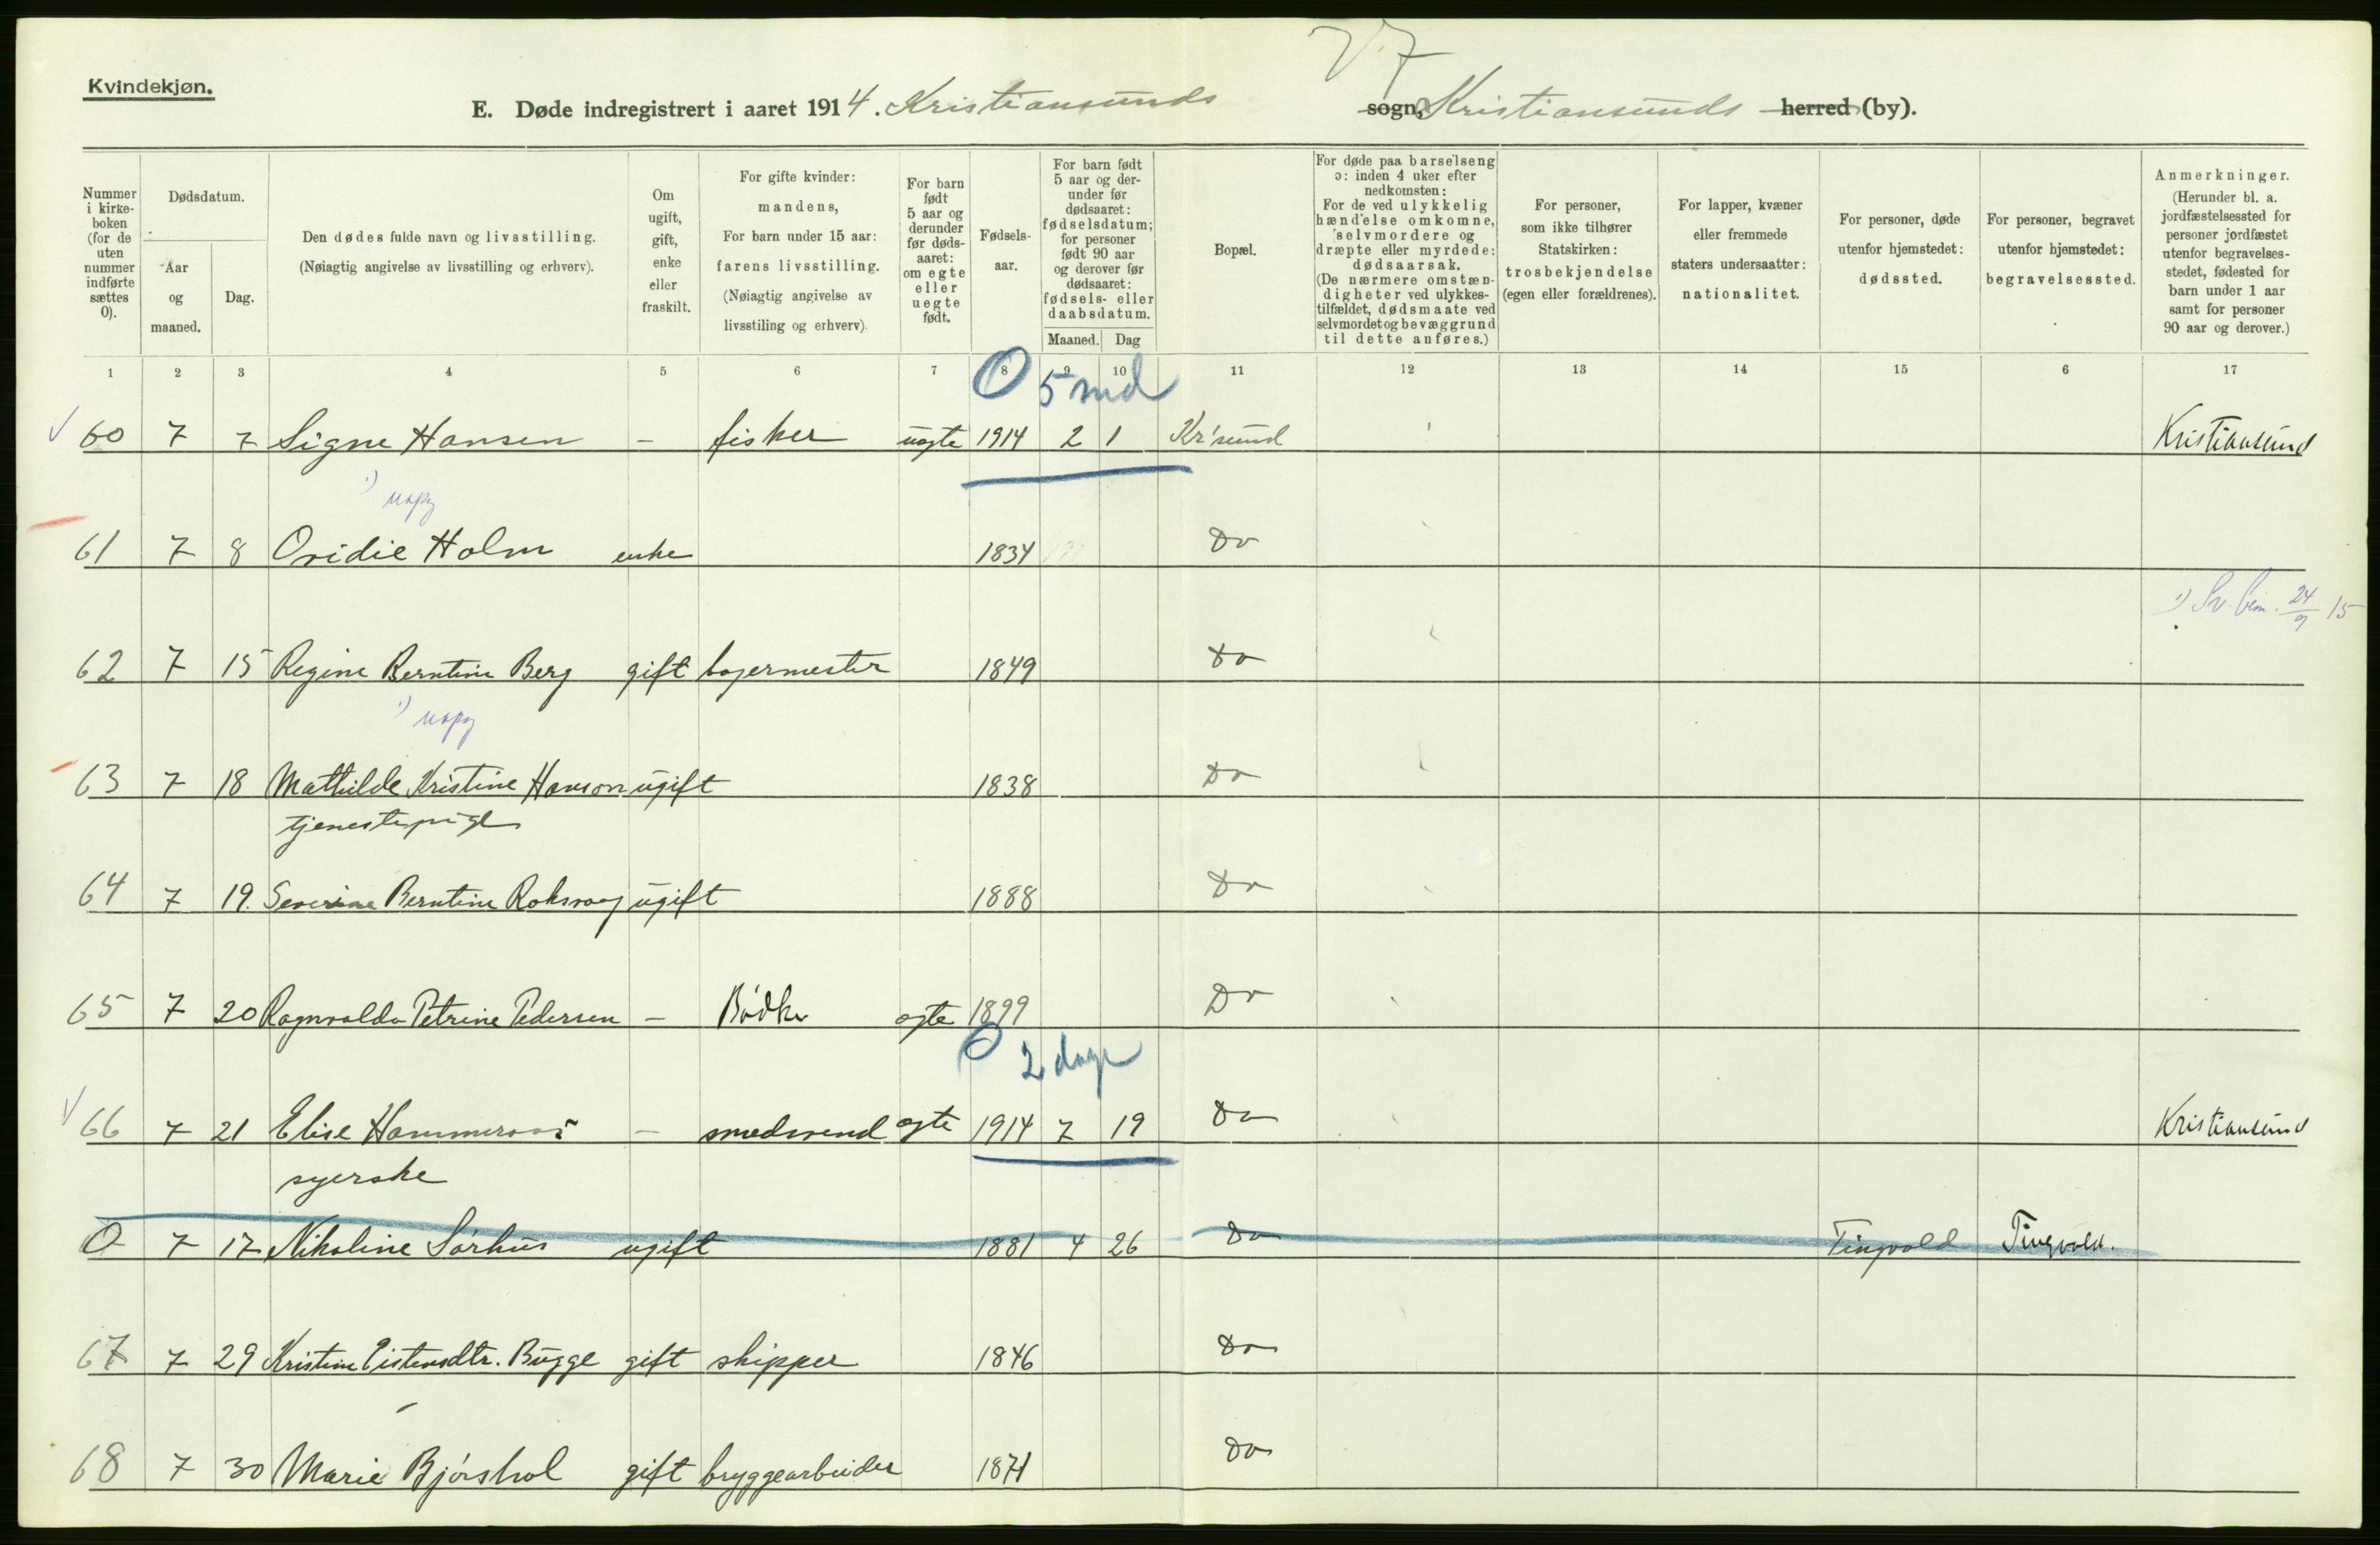 V. 7
Kvindekjøn.
E. Døde indregistrert i aaret 1914. Kristiansunds sogn, Kristiansunds herred (by).
Nummer i kirke-boken (for de uten nummer indførte sættes 0).
Dødsdatum.
Aar og maaned.
Dag.
Den dødes fulde navn og livsstilling.
(Nøiagtig angivelse av livsstilling og erhverv).
Om ugift, gift, enke eller fraskilt.
For gifte kvinder: mandens, For barn under 15 aar: farens livsstilling. (Nøiagtig angivelse av livsstiling og erhverv).
For barn født 5 aar og derunder før døds-aaret: om egte eller uegte født.
Fødsels-aar.
For barn født 5 aar og der-under før dødsaaret: fødselsdatum; for personer født 90 aar og derover før dødsaaret: fødsels- eller daabsdatum.
Maaned. Dag
Bopæl.
For døde paa barselseng ɔ: inden 4 uker efter nedkomsten: For de ved ulykkelig hændelse omkomne, selvmordere og dræpte eller myrdede: dødsaarsak. (De nærmere omstæn-digheter ved ulykkes-tilfældet, dødsmaate ved selvmordet og bevæggrund til dette anføres.)
For personer, som ikke tilhører Statskirken: trosbekjendelse (egen eller forældrenes).
For lapper, kvæner eller fremmede staters undersaatter: nationalitet.
For personer, døde utenfor hjemstedet: dødssted.
For personer, begravet utenfor hjemstedet: begravelsessted.
Anmerkninger. (Herunder bl. a. jordfæstelsessted for personer jordfæstet utenfor begravelses-stedet, fødested for barn under 1 aar samt for personer 90 aar og derover.)
1 2 3 4 5 6 7 8 9 10 11 12 13 14 15 6 17
0 5 md
60 7 7 Signe Hansen – fisker uegte 1914 2 1 Kr'sund Kristiansund
1)
61 7 8 Ovidie Holm enke 1834 Do
1) 24/9 15
62 7 15 Regine Berntine Berg gift bøjermester 1849 Do
1)
63 7 18 Mathilde Kristine Hanson ugift 1838 Do
tjenestepige
64 7 19. Severine Berntine Roksvaag ugift 1888 Do
65 7 20 Ragnvalda Petrine Pedersen – Bødker egte 1899 Do
0 2 dage
66 7 21 Elise Hammeraas – smedsvend egte 1914 7 19 Do Kristiansund
syerske
0 7 17 Nikoline Sørhus ugift 1881 4 26 Do Tingvold Tingvold.
67 7 29 Kristine Eistensdtr. Bugge gift skipper 1846 Do
68 7 30 Marie Bjørshol gift bryggearbeider 1871 Do